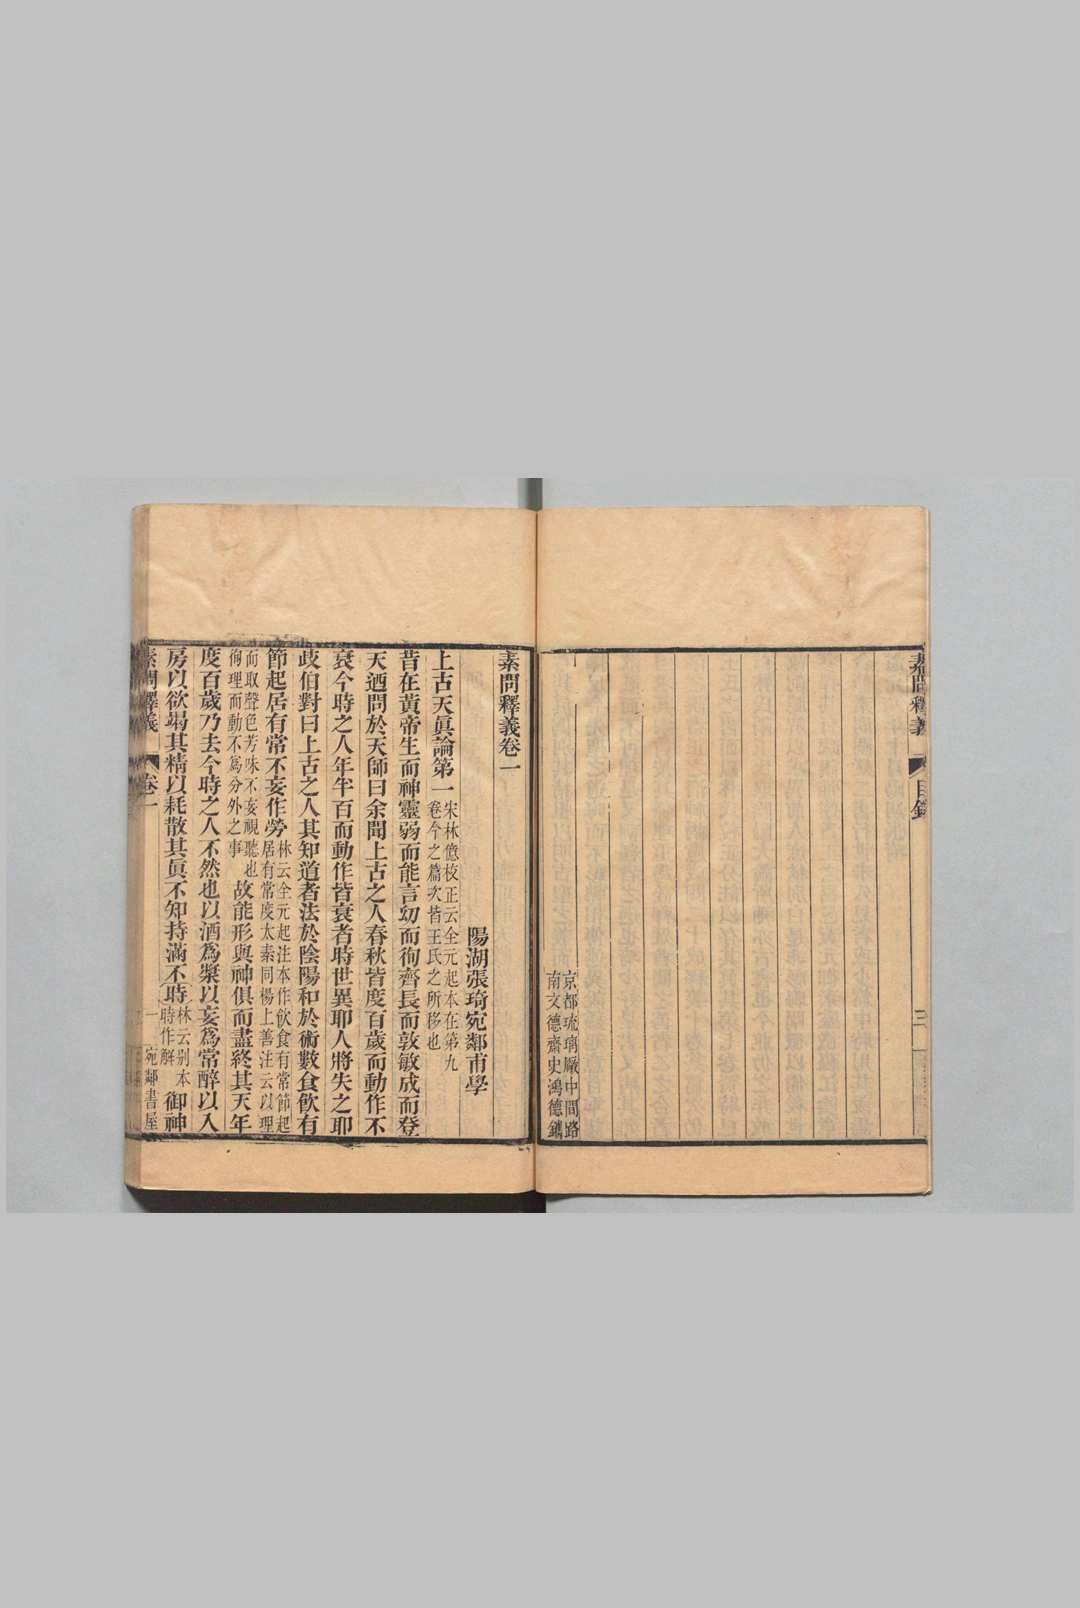 素問釋義
目錄
三
京都琉璃厰中間路
南文德齋史鴻德鐫
素問釋義卷一
陽湖張琦宛鄰甫學
上古天眞論第一
宋林億校正云全元起本在第九
卷今之篇次皆王氏之所移也
昔在黃帝生而神靈弱而能言幼而徇齊長而敦敏成而登
天迺問於天師曰余聞上古之人春秋皆度百歲而動作不
衰今時之人年半百而動作皆衰者時世異耶人將失之耶
歧伯對曰上古之人其知道者法於陰陽和於術數食飮有
節起居有常不妄作勞
林云全元起注本作飮食有常節起
居有常度太素同楊上善注云以理
而取聲色芳味不妄視聽也
徇理而動不爲分外之事
故能形與神俱而盡終其天年
度百歲乃去今時之人不然也以酒爲漿以妄爲常醉以入
房以欲竭其精以耗散其眞不知持滿不時
林云别本
時作解
御神
素問釋義
卷一
一
宛鄰書屋